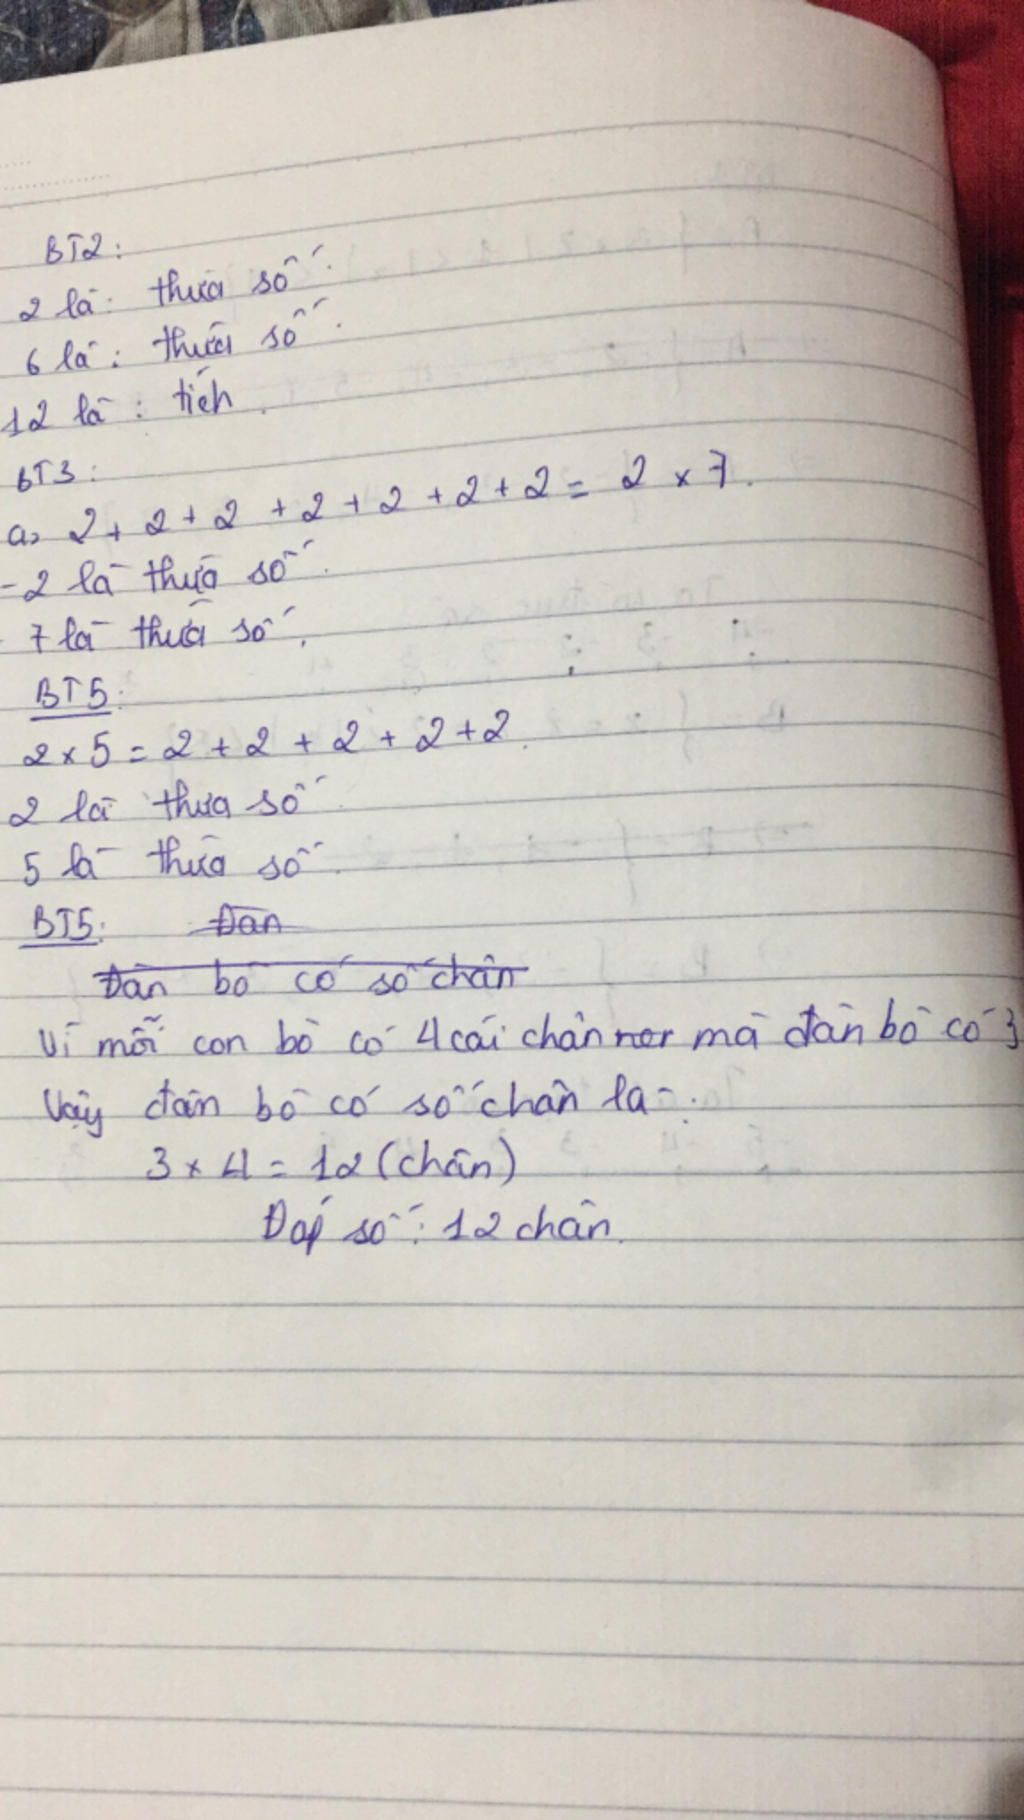 BT2:
2 là: thừa số.
6 là: thừa số.
12 là: tích.
BT3:
a, 2 + 2 + 2 + 2 + 2 + 2 + 2 = 2 x 7.
- 2 là thừa số.
- 7 là thừa số.
BT5:
2 x 5 = 2 + 2 + 2 + 2 + 2.
2 là thừa số.
5 là thừa số.
BT5: Đàn
Đàn bò có số chân
Vì mỗi con bò có 4 cái chân mà đàn bò có 3
Vậy đàn bò có số chân là:
3 x 4 = 12 (chân)
Đáp số: 12 chân.